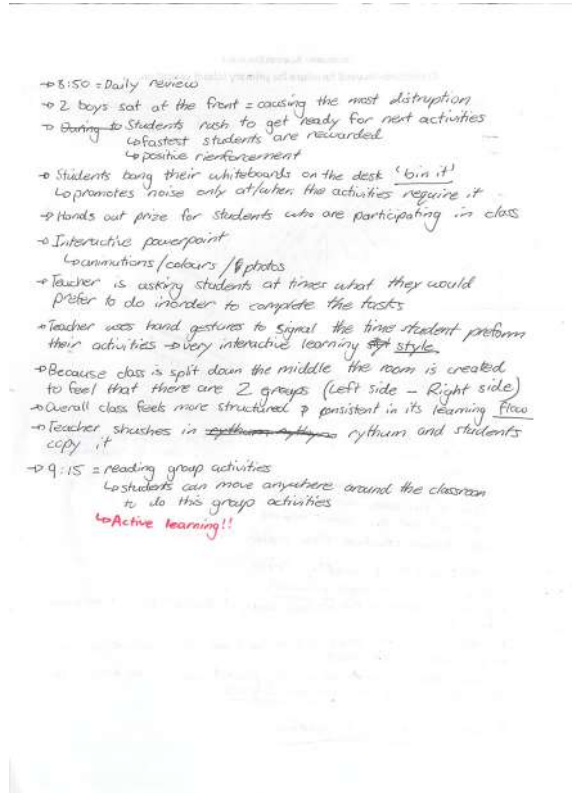 → 8:50 = Daily review
→ 2 boys sat at the front = causing the most distruption
→ During to Students rush to get ready for next activities
↳ fastest students are rewarded
↳ positive rienforcement
→ Students bang their whiteboards on the desk 'bin it'
↳ promotes noise only at/when the activities require it
→ Hands out prize for students who are participating in class
→ Interactive powerpoint
↳ animations/colours/photos
→ Teacher is asking students at times what they would
prefer to do inorder to complete the tasks
→ Teacher uses hand gestures to signal the time student preform
their activities → very interactive learning style
→ Because class is split down the middle the room is created
to feel that there are 2 groups (Left side – Right side)
→ Overall class feels more structured & consistent in its learning flow
→ Teacher shushes in rythum and students
copy it
→ 9:15 = reading group activities
↳ students can move anywhere around the classroom
to do this group activities
↳ Active learning!!